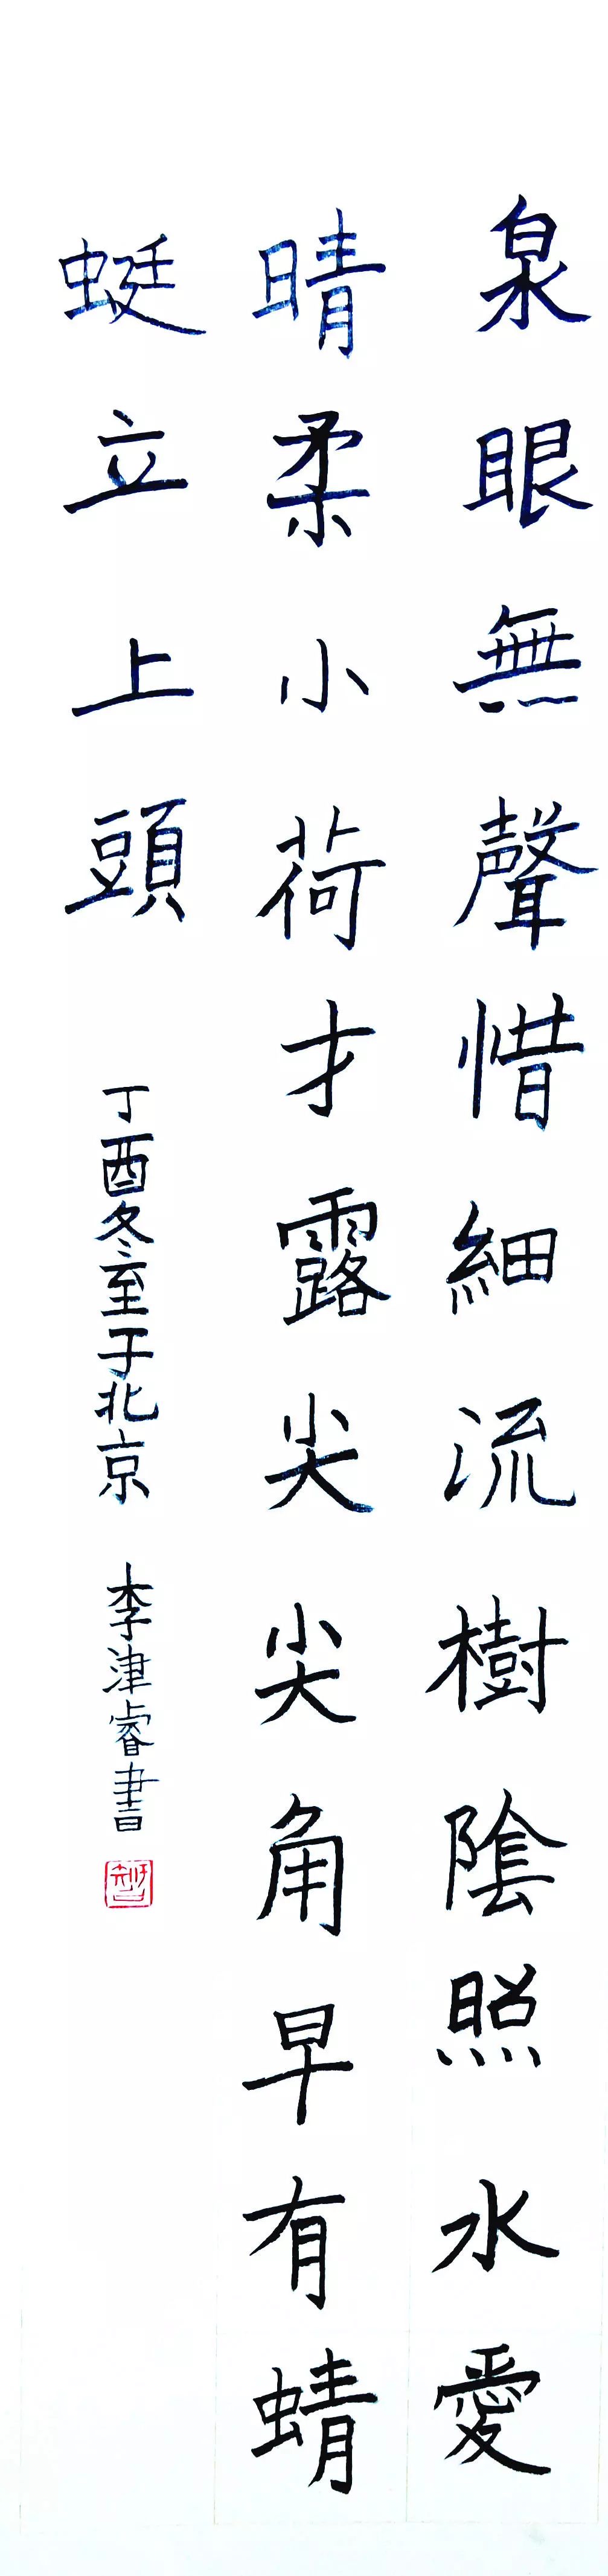 泉眼無聲惜細流樹陰照水愛
晴柔小荷才露尖尖角早有蜻
蜓立上頭
丁酉冬至于北京 李津睿書